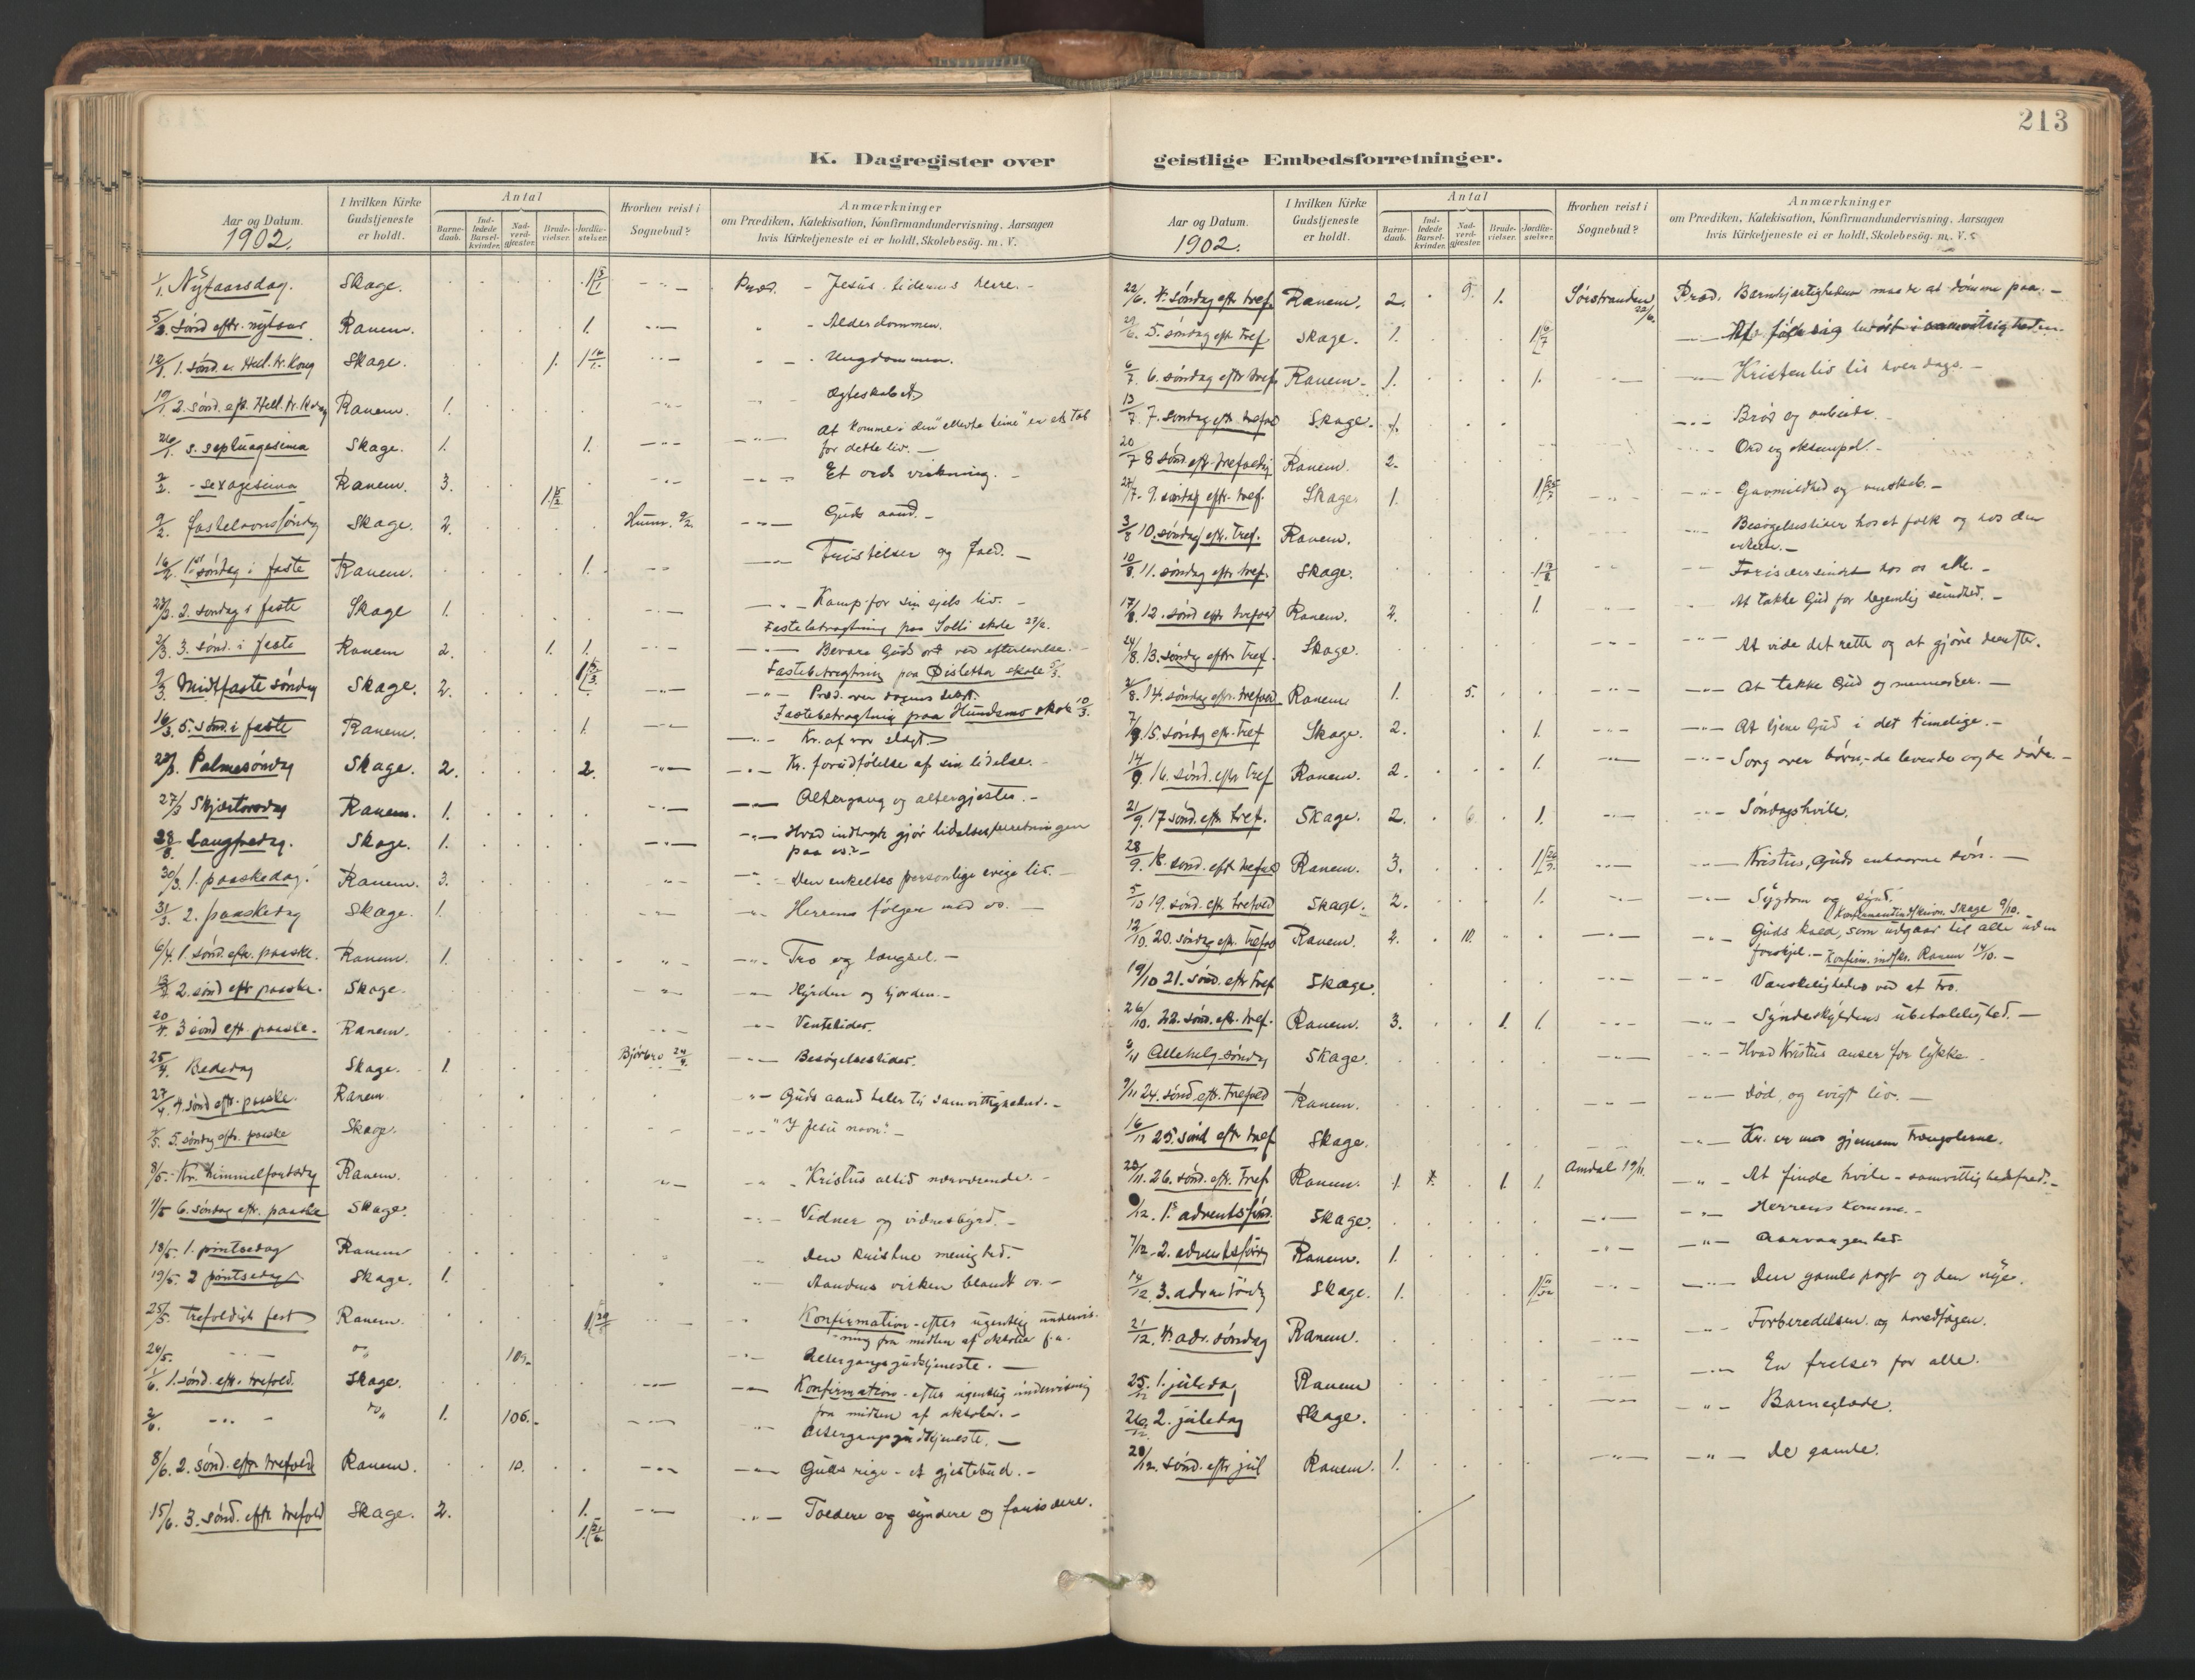 213
K. Dagregister over geistlige Embedsforretninger.
Aar og Datum.
1902.
I hvilken Kirke Gudstjeneste er holdt.
Antal
Barne-daab.
Ind-ledede Barsel-kvinder.
Nad-verd-gjester.
Brude-vielser.
Jordfæ-stelser.
Hvorhen reist i Sognebud?
Anmærkninger
om Prædiken, Katekisation, Konfirmandundervisning, Aarsagen
hvis Kirketjeneste ei er holdt, Skolebesög. m. V.
1/1. Nytaarsdag. Skage. Præd. - Jesus tidernes herre. -
Sønd. eftr. nytaar Ranem. 1. - Alderdommen.
12/1. 1. sønd. e. Hell. tr. Kong Skage. 1. - Ungdommen.
19/1. 2. sønd. eft. Hell. tr. Kong Ranem. 1. Ægteskabet
26/1. s. septuagesima Skage. 1. 1. At komme i den "ellevte time" er et tab
for dette liv. -
2/2. - sexagesima Ranem. 3. Et ords virkning. -
9/2. fastelavnssøndag Skage. 2. 9/2. Guds aand. -
16/2. 1. søndag i faste Ranem. 1. Fristelser og fald. -
23/2. 2. søndag i faste Skage 1. Kamp for sin sjels liv. -
Fastebetragtning paa Solli skole
2/3. 3. sønd. i faste Ranem 2. 1. 1. Bevare Guds ord ved efterlevelse. -
Fastebetragtning paa Øisletta skole 5/3.
9/3. Midtfaste søndag Skage. 2. Præd. over dagens text.
Fastebetragtning paa Hundsmo skole 10/3.
16/3. 5. sønd. i faste Ranem. 1. Kr. af vor slægt.
23/3. Palmesøndag Skage. 2. 2. Kr. forudfølelse af sin lidelse. -
27/3 Skjærtorsdag Ranem. 1. Altergang og altergjester. -
28/3. Langfredag. Skage. 1. Hvad indtryk gjör lidelsesberetningen
paa os? -
30/3. 1. paaskedag. Ranem. 3. Den enkeltes personlige evige liv. -
31/3. 2. paaskedag Skage. 1. Herren følger med os. -
6/4. 1. sønd. eftr. paaske. Ranem. 1. Tro og længsel. -
13/4. 2. sønd eft paaske. Skage. Hyrden og hjorden. -
20/4. 3 sønd eft. paaske. Ranem. Ventetider.
25/4. Bededag Skage. 1. Besøgelsestider.
27/4. 4. sønd eft. paaske. Ranem Guds aand taler til samvittigheden. -
5. søndag eftr. paaske Skage. "I Jesu navn". -
8/5. - Kr. himmelfartsdag Ranem. Kristus altid nærværende. -
11/5 6. søndag eftr. paaske Skage. Vidner og vidnesbyrd. -
18/5. 1. pintsedag Ranem Den kristne menighed.
19/5. 2 pintsedag. Skage. 1. Aandens virken blandt os. -
25/5. Trefoldigh. fest Ranem. Konfirmation - efter ugentlig undervis-
ning fra midten af oktober f. a.
26/5. 109. Altergangsgudstjeneste. -
1/6. 1. sønd. eftr. trefold. Skage. Konfirmation - efter ugentlig undervisning
fra midten af oktober. -
2/6. 1. 106. Altergangsgudstjeneste. -
8/6. 2. sønd. eftr trefold Ranem. 10. Guds rige - et gjestebud. -
15/6. 3. sønd. eftr trefold Skage. 2. 1. Toldere og syndere og farisæere.
Aar og Datum.
1902.
I hvilken Kirke Gudstjeneste er holdt.
Antal
Barne-daab.
Ind-ledede Barsel-kvinder.
Nad-verd-gjester.
Brude-vielser.
Jordfæ-stelser.
Hvorhen reist i Sognebud?
Anmærkninger
om Prædiken, Katekisation, Konfirmandundervisning, Aarsagen
hvis Kirketjeneste ei er holdt, Skolebesög. m. V.
22/6. 4. søndag eftr tref. Ranem. 2. 9. 1. Sørstranden 22/6. Præd. Barmhjærtigheden maade at dømme paa. -
29/6. 5. søndag eft tref. Skage. 1.
6/7. 6. søndag eftr tref. Ranem. 1. 1. Kristenliv til hverdags. -
13/7 7. søndag eft trefold Skage. 1. Brød og arbeide. -
20/7 8 sønd eft. trefoldig Ranem. 2. Ord og eksempel. -
27/7. 9. søndag eftr. tref. Skage. 1. Gavmildhed og venskab. -
3/8 10. søndag eft. tref. Ranem. Besøgelsestider hos et folk og hos den
enkelte. -
10/8. 11. søndag eftr tref. Skage. Farisæersindet hos os alle. -
17/8. 12. sønd eftr trefold Ranem. 2. 1. At takke Gud for legemlig sundhed. -
24/8. 13. søndag eftr tref. Skage. At vide det rette og at gjøre derefter.
31/8. 14. søndag eftr. trefold Ranem 1. 5. At takke Gud og mennesker. -
7/9 15. søndag eft. tref Skage. 2. 1. At tjene Gud i det timelige. -
14/9 16. sønd. eftr tref Ranem. 2. 1. Sorg over børn, - de levende og de døde. -
21/9. 17 sønd. eftr tref. Skage. 2. 6. 1. Søndagshvile.
28/9. 18. sønd. eft trefold Ranem. 3. Kristus, Guds enbaarne søn. -
5/10 19. sønd. eft trefold Skage. 2. 1. Sygdom og synd.
Konfirmandindskrivn. Skage 9/10. -
12/10. 20. søndag eft. trefold Ranem. 2. 10. Guds kald, som udgaar til alle uden
forskjel. - Konfirm. indskr. Ranem 14/10. -
19/10 21. sønd. eftr tref Skage. Vanskeligheden ved at tro.
26/10. 22. sønd. eft. tref. Ranem. 3. 1. 1. Syndeskyldens ubetalelighed. -
2/11 Allehelg. søndag Skage. Hvad Kristus anser for lykke.
9/11 24. sønd. eftr. trefold Ranem. Død, og evigt liv. -
16/11 25. sønd eftr tref Skage. Kr. er med gjennem trængslerne.
23/11. 26. sønd. eftr. tref Ranem. 1. 1. 1. 1. Amdal 19/11. At finde hvile - samvittighedsfred. -
1. adventssønd. Skage. Herrens komme. -
7/12. 2. adventssønd Ranem. 1. Aarvaagenhed.
14/12. 3. adventsøndg Skage. 1. Den gamle pagt og den nye.
21/12. 4. adv. søndag Ranem. Forberedelsen og hovedsagen.
25/12. 1. juledag Ranem En frelser for alle.
26/12. 2. juledag Skage. Barneglæde.
28/12. sønd. eftr jul Ranem. 1. De gamle.